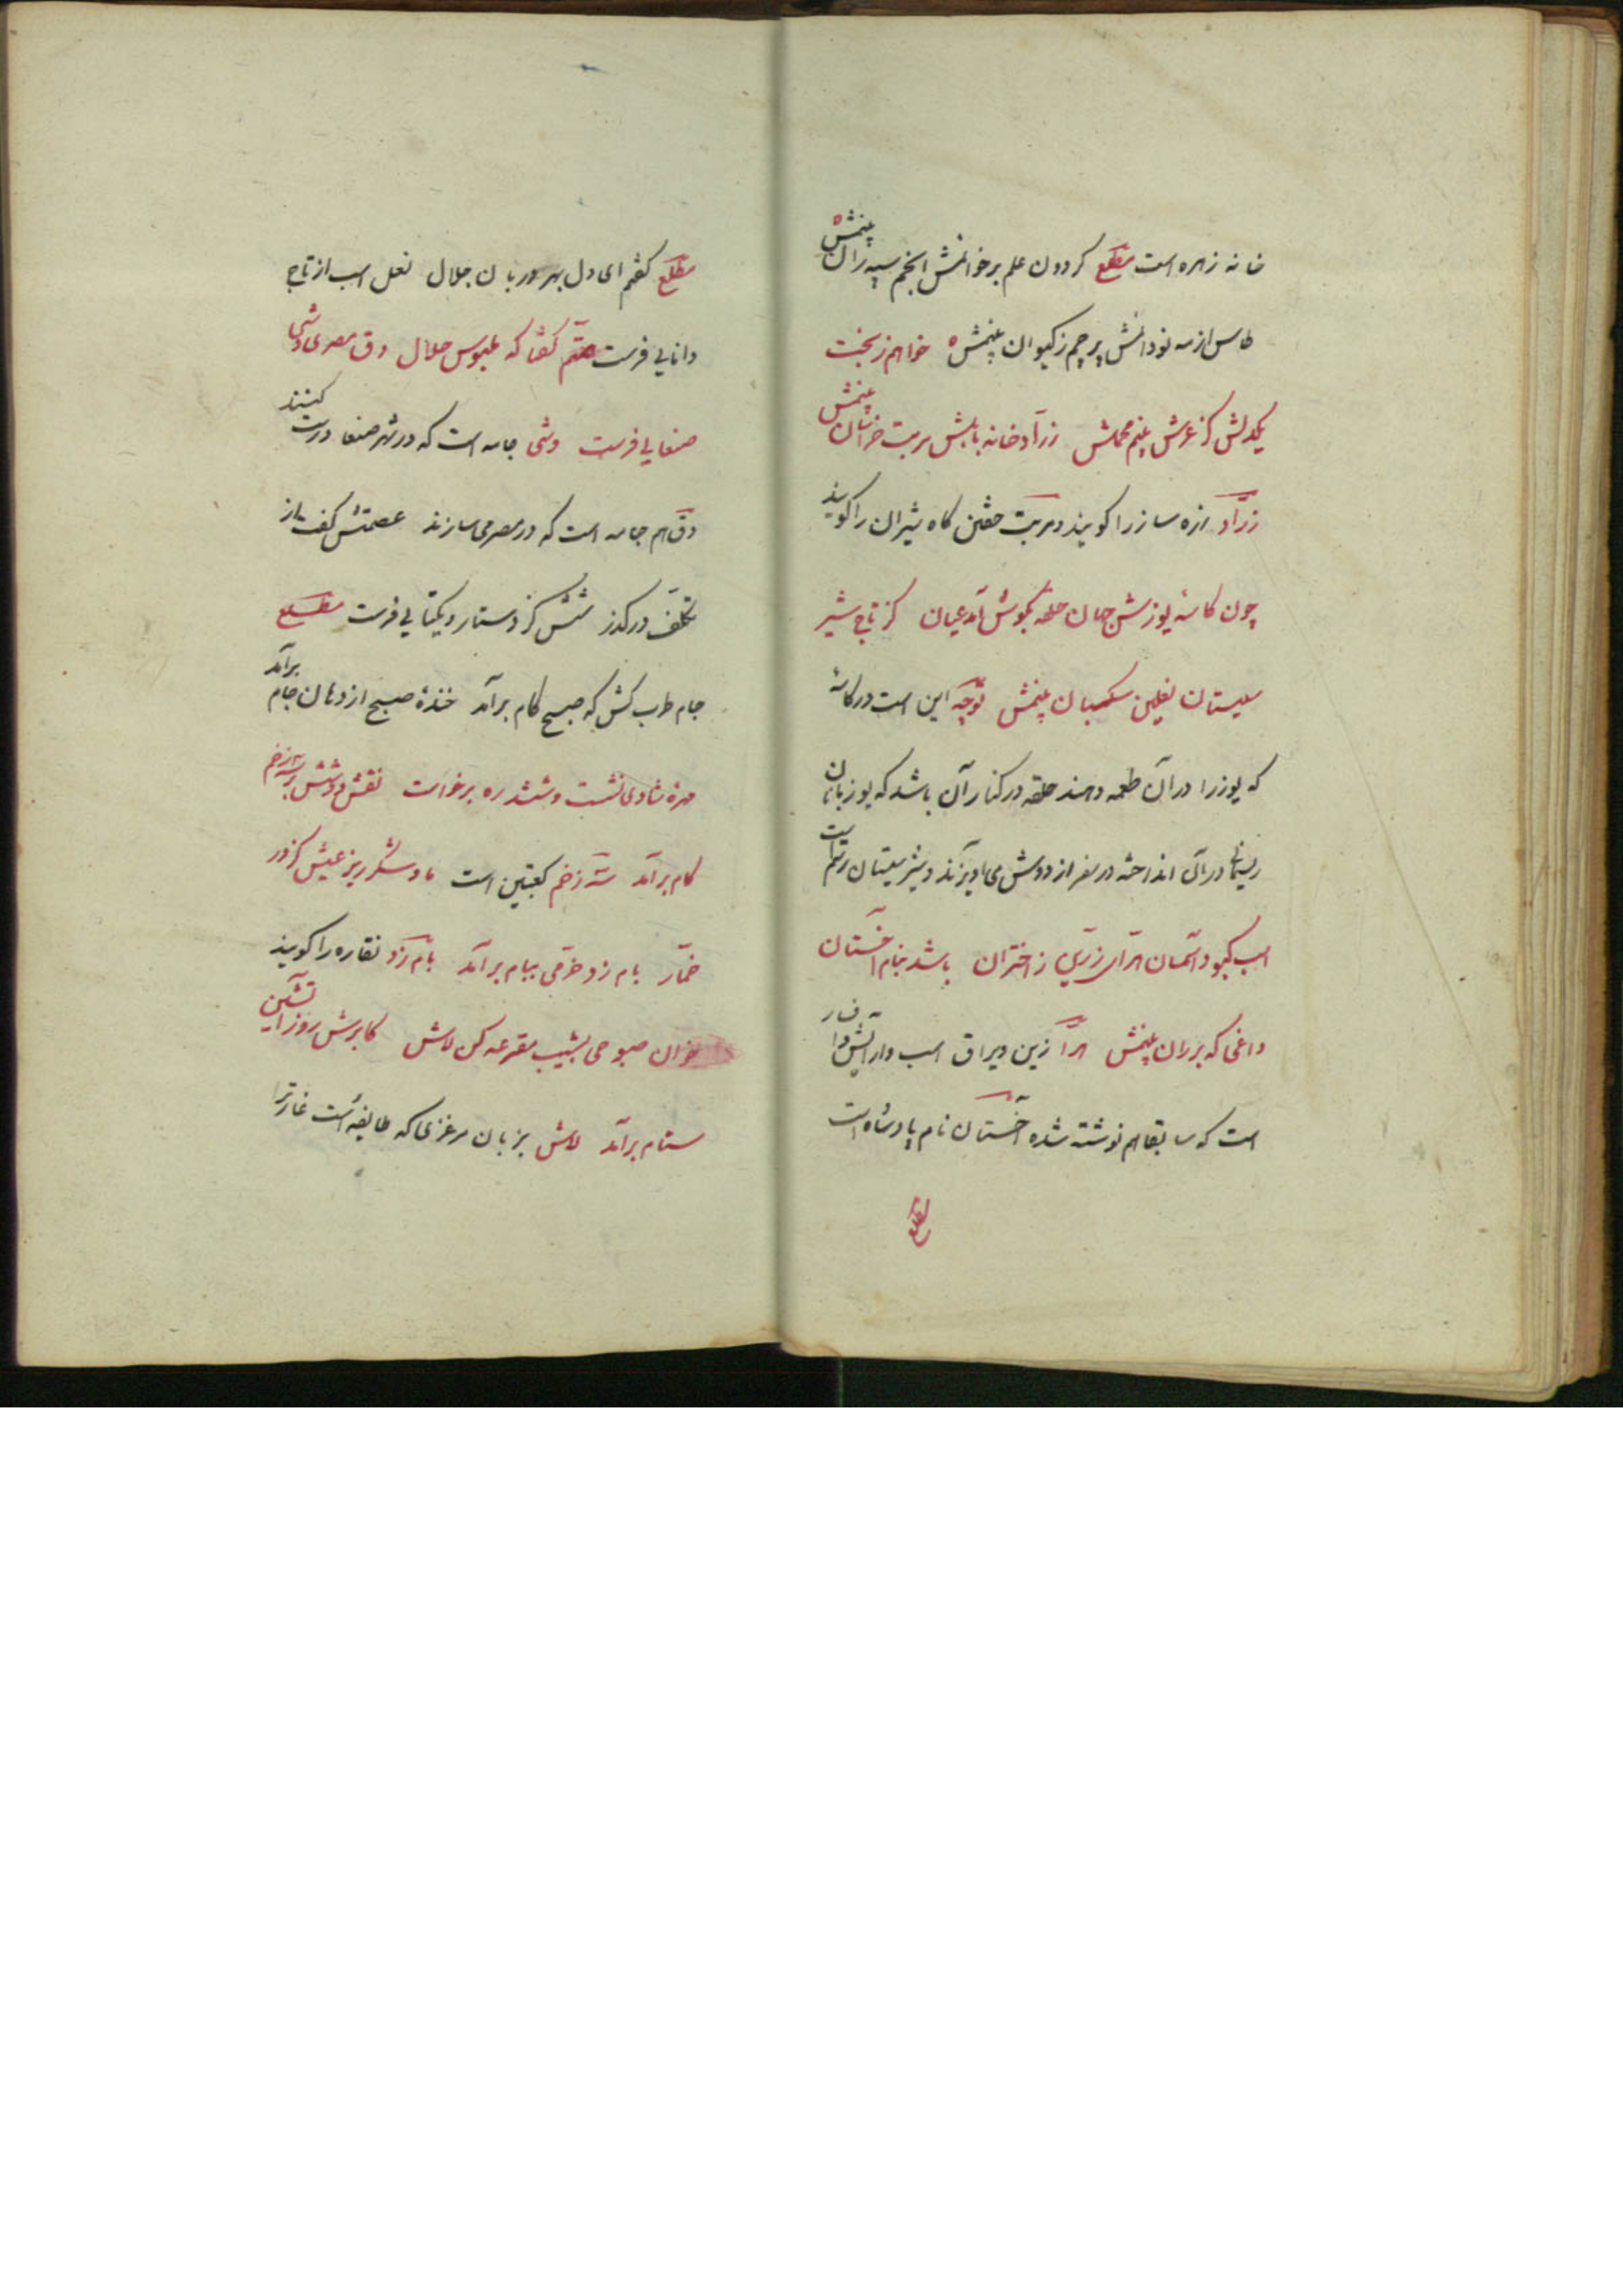 خانه زهره است مطلع گردون علم برخوانمش انجم سپه زان بینمش
طاس از مه نو دانمش پرچم ز کیوان بینمش خواهم ز بخت
یکدلش کز عرش بینم محملش زرادخانه بابلش مربت خراسان بینمش
زراد زره ساز را گویند و مربت خفتن گاه شیران را گویند
چون کاسه یوزش جهان حلقه بگوش آمد عیان کز تاج شیر
سیستان نعلین سگبان بینمش توجیه این است در کاسه
که یوز را در آن طعمه دهند حلقه در کنار آن باشد که یوزبانان
ریسمان در آن انداخته در سفر از دوش می آویزند و شیر سیستان رستم است
اسب کبود آسمان هرای زرین ز اختران باشد بنام اخستان
داغی که بر ران بینمش هرا زین و یراق اسب و آرایش
است که سابقا هم نوشته شده اخستان نام پادشاه است
مطلع
مطلع گفتم ای دل بهر دربان جلال نعل اسب از تاج
دانایی فرست گفتا که ملبوس جلال دق مصری وشی
صنعایی فرست وشی جامه است که در شهر صنعا درست کنند
دق هم جامه است که در مصر می سازند عصمتش گفت از
تکلف درگذر شش گز دستار و یکتایی فرست مطلع
جام طرب کش که صبح کام برآمد خنده صبح از دهان جام برآمد
مهره شادی نشست و ششدره برخاست نقش دو شش بر سه زخم
کام برآمد سه زخم کعبتین است ماه شکرریز عیش کز در
خمار بام زد خرمی ببام برآمد بام زد نقاره را گویند
خوان صبوحی بشیب مقرعه کن لاش کابرش روز آتشین
ستام برآمد لاش بزبان مرغزی که طایفه است غارت را